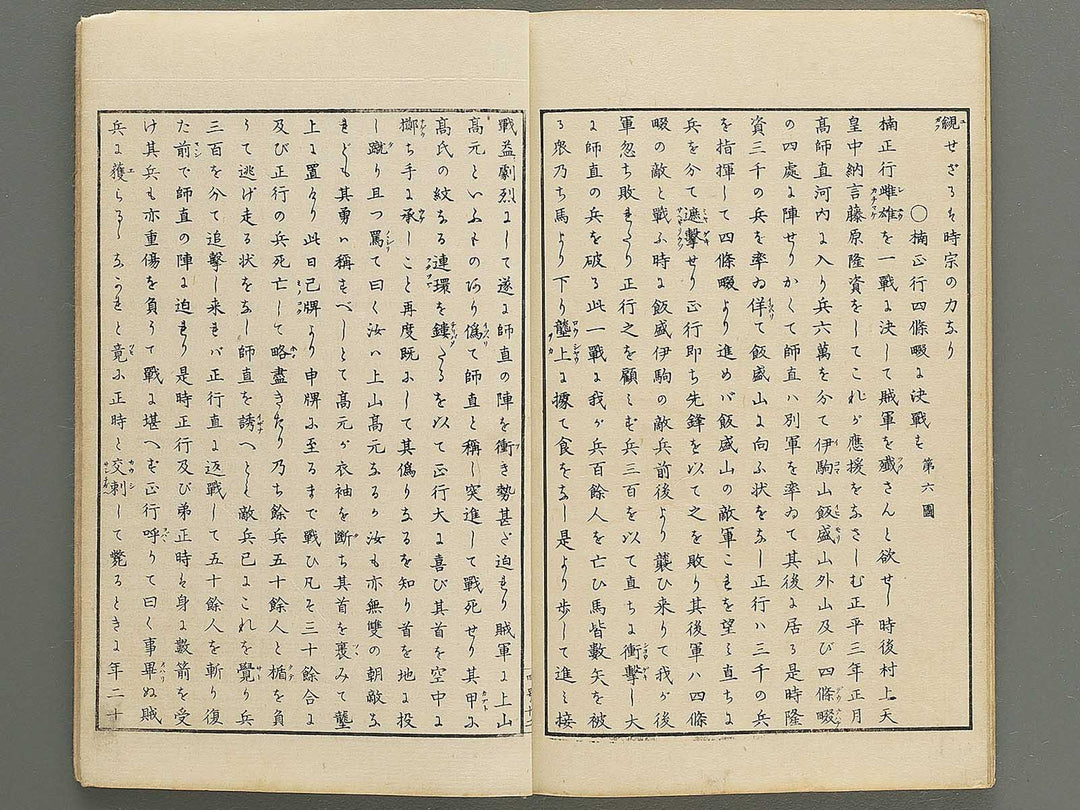 覦せざるは時宗の力なり
〇楠正行四條畷に決戰す 第六圖
楠正行雌雄を一戰に決して賊軍を殲さんと欲せし時後村上天
皇中納言藤原隆資をしてこれが應援をなさしむ正平三年正月
高師直河内に入り兵六萬を分て伊駒山飯盛山外山及び四條畷
の四處に陣せりかくて師直ハ別軍を率ゐて其後に居る是時隆
資三千の兵を率ゐ佯て飯盛山に向ふ状をなし正行ハ三千の兵
を指揮して四條畷より進めバ飯盛山の敵軍これを望み直ちに
兵を分て邀擊せり正行即ち先鋒を以て之を敗り其後軍ハ四條
畷の敵と戰ふ時に飯盛伊駒の敵兵前後より襲ひ来りて我が後
軍忽ち敗れたり正行之を顧みず兵三百を以て直ちに衝擊し大
に師直の兵を破る此一戰に我が兵百餘人を亡ひ馬皆數矢を被
る衆乃ち馬より下り壟上に據て食をなし是より歩して進み接
戰益劇烈にして遂に師直の陣を衝き勢甚ざ迫れり賊軍に上山
高元といふもの有り偽て師直と稱し突進して戰死せり其甲に
高氏の紋なる連環を鏤たるを以て正行大に喜び其首を空中に
擲ち手に承しこと再度既にして其偽りなるを知り首を地に投
し蹴り且つ罵て曰く汝ハ上山高元なるか汝も亦無雙の朝敵な
れども其勇ハ稱すべしとて高元が衣袖を断ち其首を裹みて壟
上に置けり此日己牌より申牌に至るまで戰ひ凡そ三十餘合に
及び正行の兵死亡して略盡きたり乃ち餘兵五十餘人と楯を負
うて逃げ走る状をなし師直を誘へとも敵兵已にこれを覺り兵
三百を分て追擊し来れバ正行直に返戰して五十餘人を斬り復
た前で師直の陣に迫れり是時正行及び弟正時は身に數箭を受
け其兵も亦重傷を負うて戰に堪へず正行呼りて曰く事畢ぬ賊
兵に獲らるゝなかれと竟に正時と交刺して斃るときに年二十